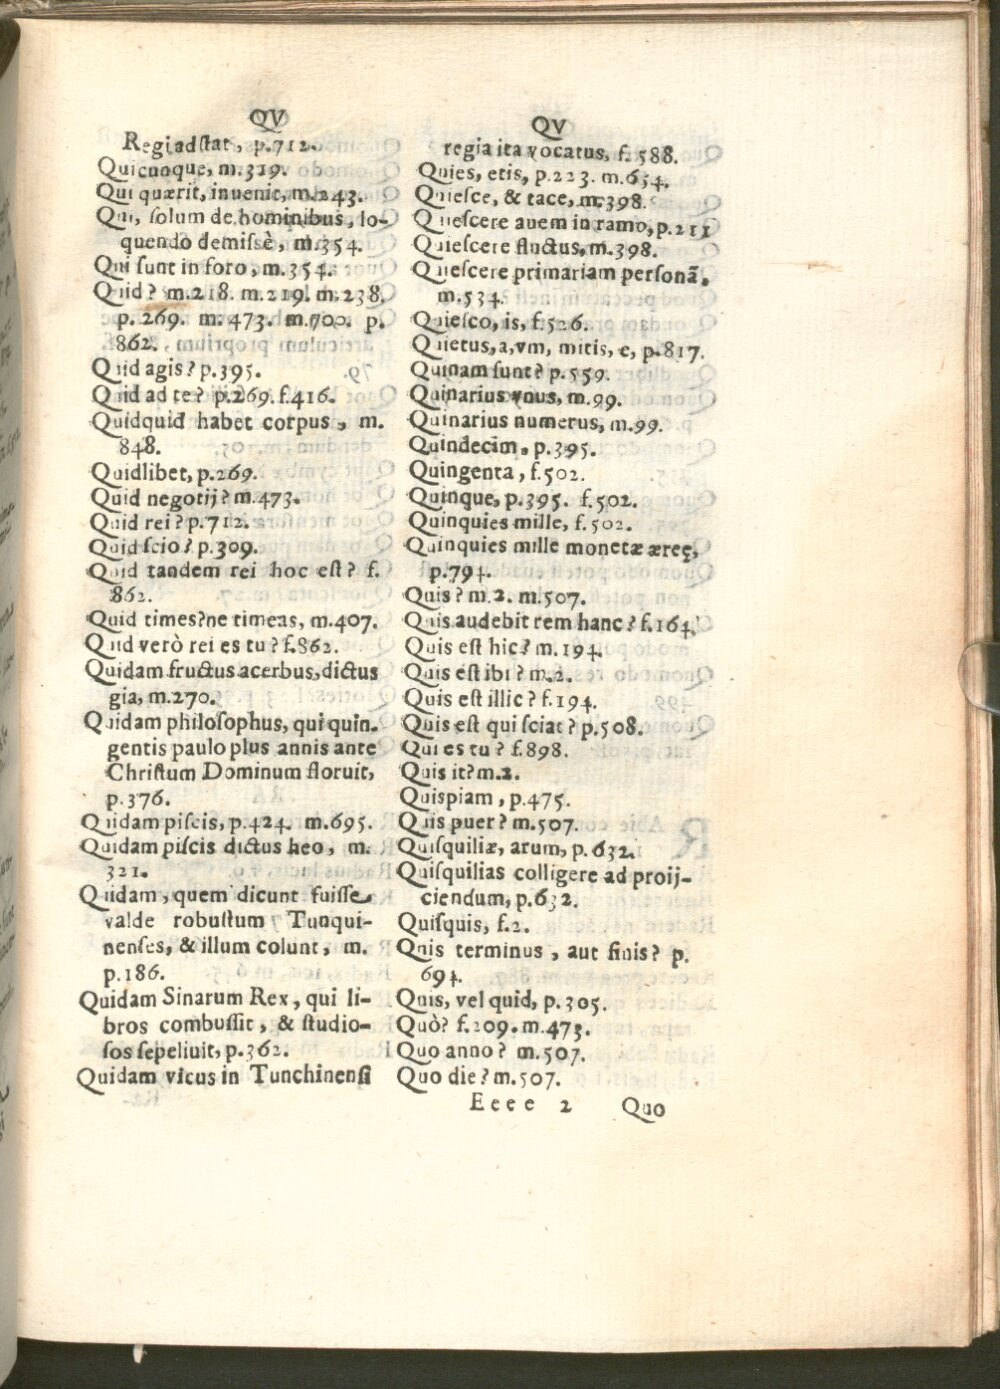 QV
Regi adſtat, p.712.
Quicunque, m.319.
Qui quærit, inuenit, m.243.
Qui, ſolum de hominibus, lo-
quendo demiſſè, m.354.
Qui ſunt in foro, m.354.
Quid? m.218. m.219. m.238.
p. 269. m. 473. m.700. p.
862.
Quid agis? p.395.
Quid ad te? p.269. f.416.
Quidquid habet corpus, m.
848.
Quidlibet, p.269.
Quid negotij? m.473.
Quid rei? p.712.
Quid ſcio? p.309.
Quid tandem rei hoc eſt? f.
862.
Quid times? ne timeas, m.407.
Quid verò rei es tu? f.862.
Quidam fructus acerbus, dictus
gia, m.270.
Quidam philoſophus, qui quin-
gentis paulo plus annis ante
Chriſtum Dominum floruit,
p.376.
Quidam piſcis, p.424. m.695.
Quidam piſcis dictus heo, m.
321.
Quidam, quem dicunt fuiſſe
valde robuſtum Tunqui-
nenſes, & illum colunt, m.
p.186.
Quidam Sinarum Rex, qui li-
bros combuſſit, & ſtudio-
ſos ſepeliuit, p.362.
Quidam vicus in Tunchinenſi
QV
regia ita vocatus, f. 588.
Quies, etis, p.223. m.654.
Quieſce, & tace, m.398.
Quieſcere auem in ramo, p.211
Quieſcere fluctus, m.398.
Quieſcere primariam perſonã,
m.534.
Quieſco, is, f.526.
Quietus, a, vm, mitis, e, p.817.
Quinam ſunt? p.559.
Quinarius vnus, m.99.
Quinarius numerus, m.99.
Quindecim, p.395.
Quingenta, f.502.
Quinque, p.395. f.502.
Quinquies mille, f.502.
Quinquies mille monetæ æreę,
p.794.
Quis? m.2. m.507.
Quis audebit rem hanc? f.164.
Quis eſt hic? m.194.
Quis eſt ibi? m.2.
Quis eſt illic? f.194.
Quis eſt qui ſciat? p.508.
Qui es tu? f.898.
Quis it? m.2.
Quispiam, p.475.
Quis puer? m.507.
Quiſquiliæ, arum, p.632.
Quiſquilias colligere ad proij-
ciendum, p.632.
Quiſquis, f.2.
Quis terminus, aut finis? p.
694.
Quis, vel quid, p.305.
Quò? f.209. m.473.
Quo anno? m.507.
Quo die? m.507.
Eeee 2 Quo